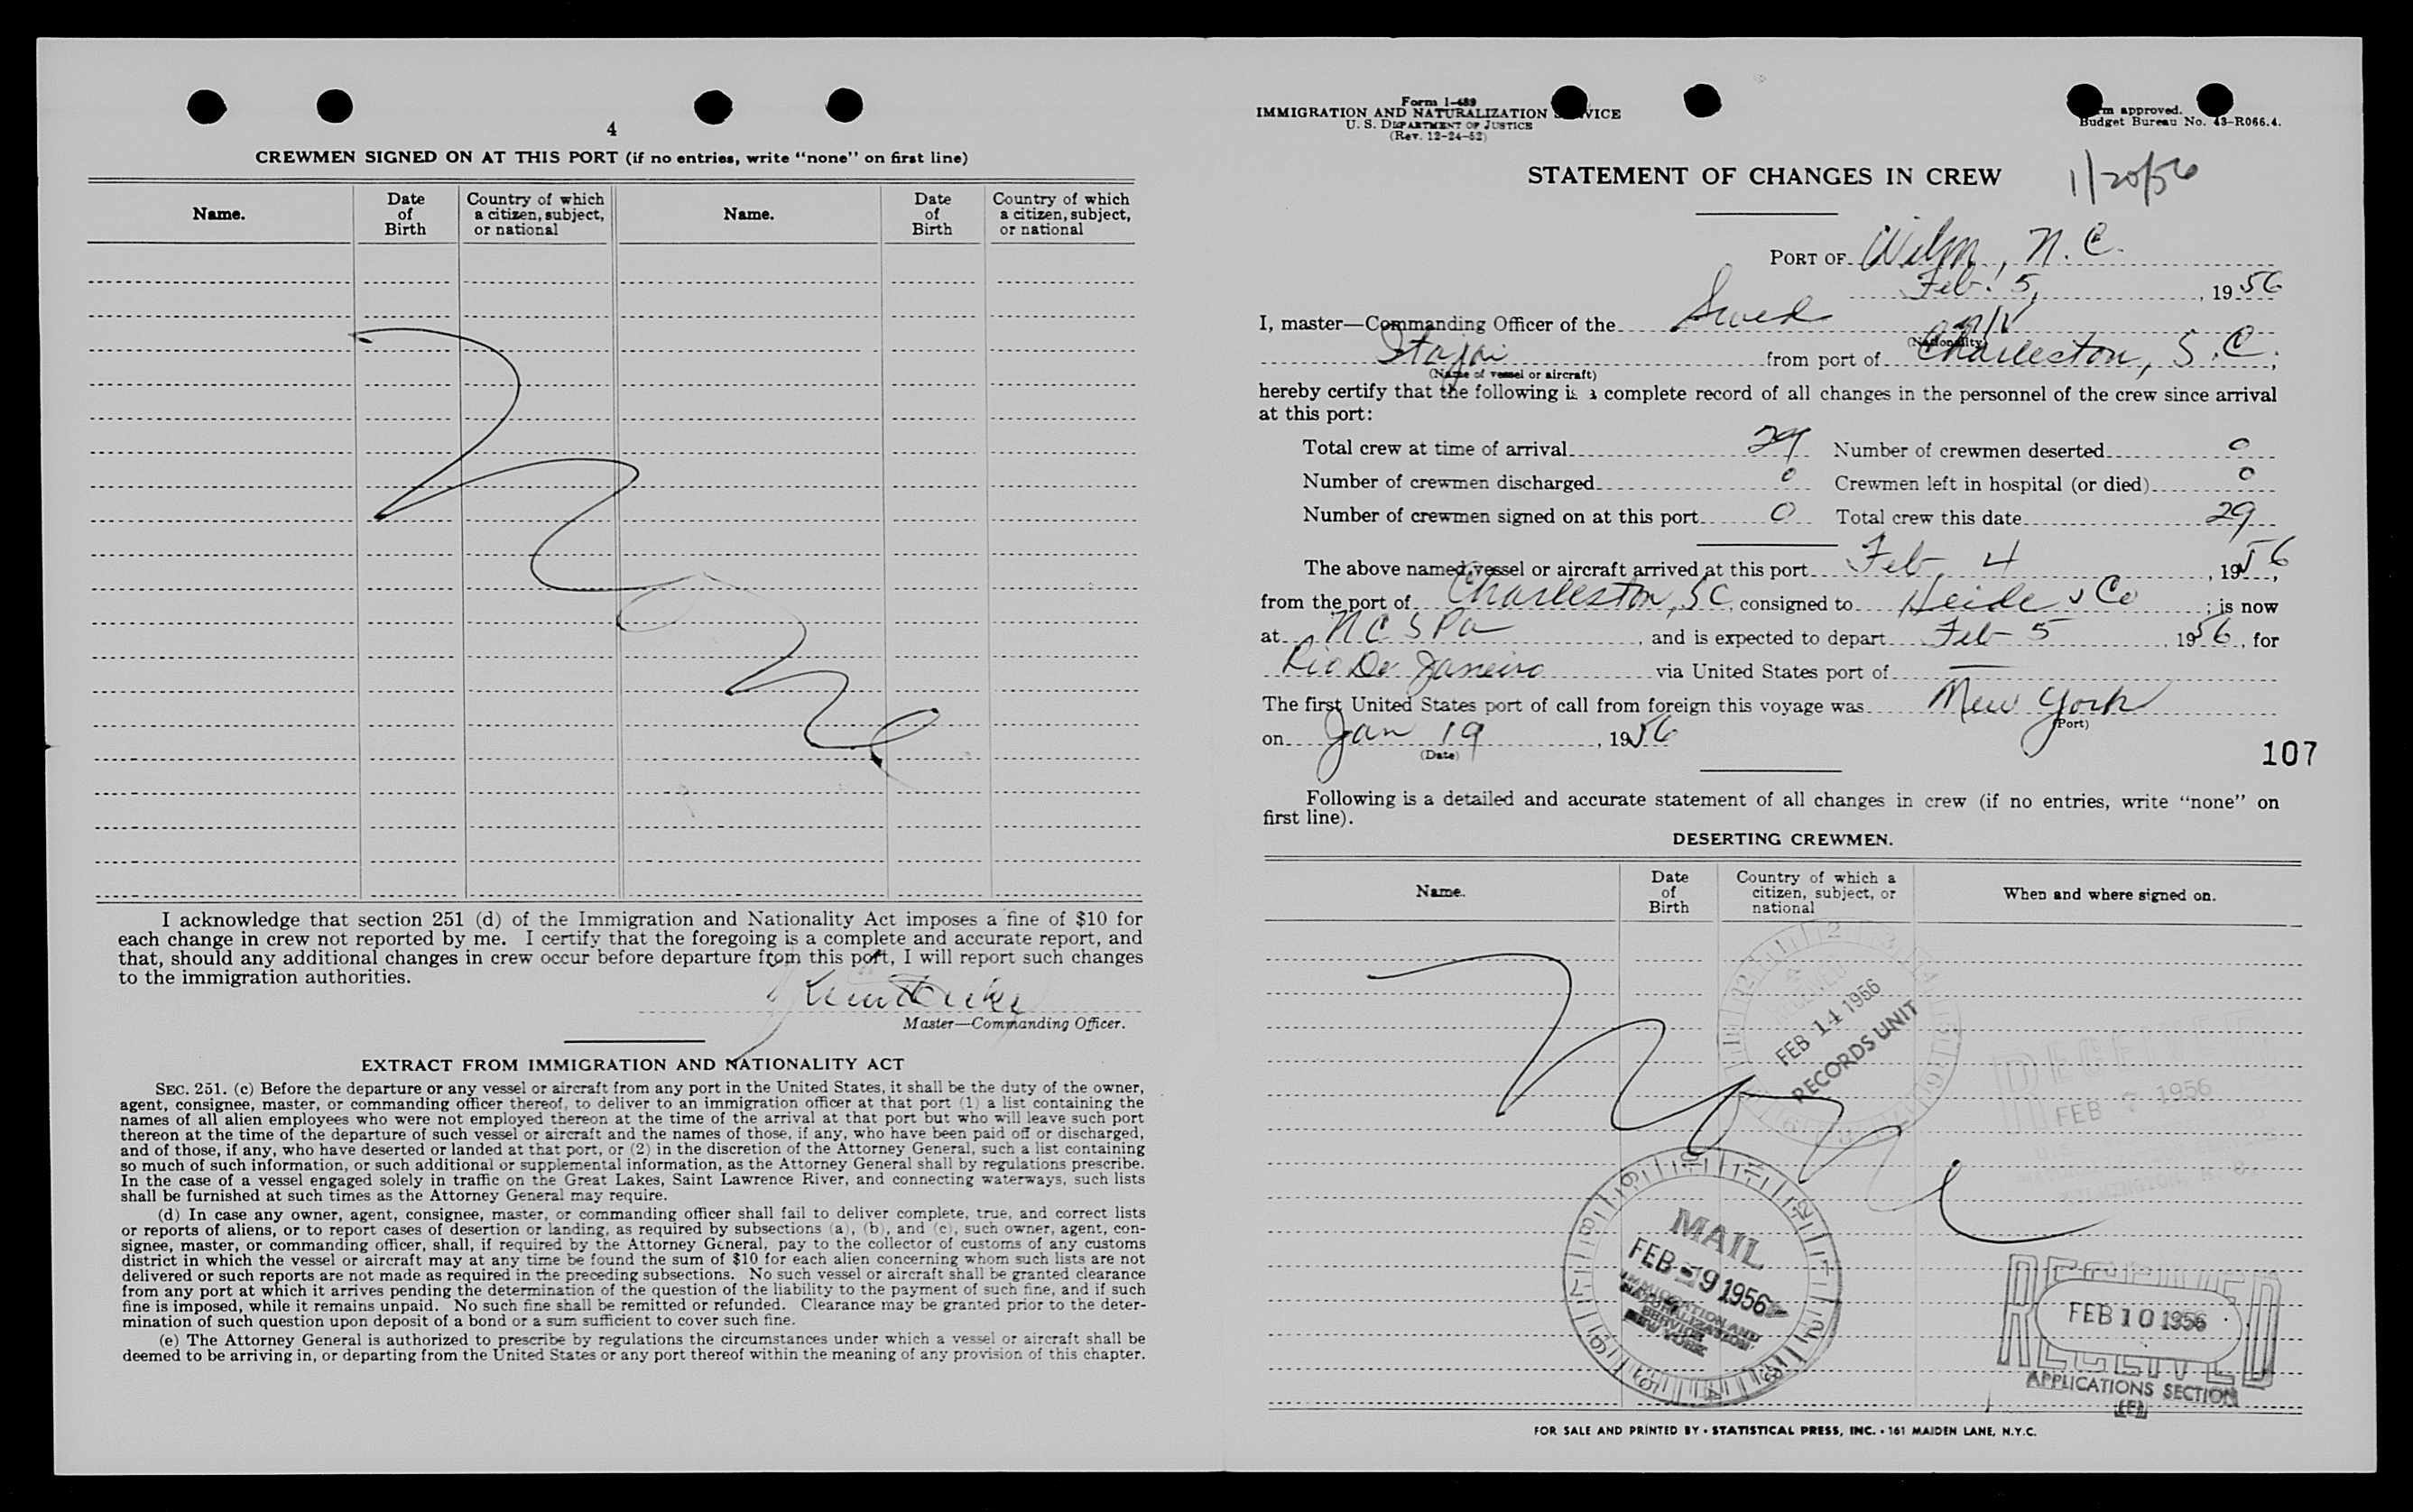 4
CREWMEN SIGNED ON AT THIS PORT (if no entries, write "none" on first line)
Name.
Date of Birth
Country of which a citizen, subject, or national
Name.
Date of Birth
Country of which a citizen, subject, or national
None
I acknowledge that section 251 (d) of the Immigration and Nationality Act imposes a fine of $10 for
each change in crew not reported by me. I certify that the foregoing is a complete and accurate report, and
that, should any additional changes in crew occur before departure from this port, I will report such changes
to the immigration authorities.
Master—Commanding Officer.
EXTRACT FROM IMMIGRATION AND NATIONALITY ACT
SEC. 251. (c) Before the departure or any vessel or aircraft from any port in the United States, it shall be the duty of the owner,
agent, consignee, master, or commanding officer thereof, to deliver to an immigration officer at that port (1) a list containing the
names of all alien employees who were not employed thereon at the time of the arrival at that port but who will leave such port
thereon at the time of the departure of such vessel or aircraft and the names of those, if any, who have been paid off or discharged,
and of those, if any, who have deserted or landed at that port, or (2) in the discretion of the Attorney General, such a list containing
so much of such information, or such additional or supplemental information, as the Attorney General shall by regulations prescribe.
In the case of a vessel engaged solely in traffic on the Great Lakes, Saint Lawrence River, and connecting waterways, such lists
shall be furnished at such times as the Attorney General may require.
(d) In case any owner, agent, consignee, master, or commanding officer shall fail to deliver complete, true, and correct lists
or reports of aliens, or to report cases of desertion or landing, as required by subsections (a), (b), and (c), such owner, agent, con-
signee, master, or commanding officer, shall, if required by the Attorney General, pay to the collector of customs of any customs
district in which the vessel or aircraft may at any time be found the sum of $10 for each alien concerning whom such lists are not
delivered or such reports are not made as required in the preceding subsections. No such vessel or aircraft shall be granted clearance
from any port at which it arrives pending the determination of the question of the liability to the payment of such fine, and if such
fine is imposed, while it remains unpaid. No such fine shall be remitted or refunded. Clearance may be granted prior to the deter-
mination of such question upon deposit of a bond or a sum sufficient to cover such fine.
(e) The Attorney General is authorized to prescribe by regulations the circumstances under which a vessel or aircraft shall be
deemed to be arriving in, or departing from the United States or any port thereof within the meaning of any provision of this chapter.
Form I-489
IMMIGRATION AND NATURALIZATION SERVICE
U. S. DEPARTMENT OF JUSTICE
(Rev. 12-24-52)
Form approved.
Budget Bureau No. 43-R066.4.
STATEMENT OF CHANGES IN CREW
1/20/56
PORT OF Wilm, N. C.
Feb. 5, 1956
I, master—Commanding Officer of the Swed M/V
(Nationality)
Itajai from port of Charleston, S. C.
(Name of vessel or aircraft)
hereby certify that the following is a complete record of all changes in the personnel of the crew since arrival
at this port:
Total crew at time of arrival 29 Number of crewmen deserted 0
Number of crewmen discharged 0 Crewmen left in hospital (or died) 0
Number of crewmen signed on at this port 0 Total crew this date 29
The above named vessel or aircraft arrived at this port Feb 4, 1956,
from the port of Charleston, SC, consigned to Heide & Co; is now
at NCSPa, and is expected to depart Feb 5 1956, for
Rio De Janeiro via United States port of —
The first United States port of call from foreign this voyage was New York
(Port)
on Jan 19, 1956
(Date)
107
Following is a detailed and accurate statement of all changes in crew (if no entries, write "none" on
first line).
DESERTING CREWMEN.
Name.
Date of Birth
Country of which a citizen, subject, or national
When and where signed on.
None
RECEIVED
FEB 14 1956
RECORDS UNIT
RECEIVED
FEB 1956
WILMINGTON, N. C.
MAIL
FEB -9 1956
IMMIGRATION AND
NATURALIZATION
SERVICE
NEW YORK
RECEIVED
FEB 10 1956
APPLICATIONS SECTION
FOR SALE AND PRINTED BY • STATISTICAL PRESS, INC. • 161 MAIDEN LANE, N.Y.C.